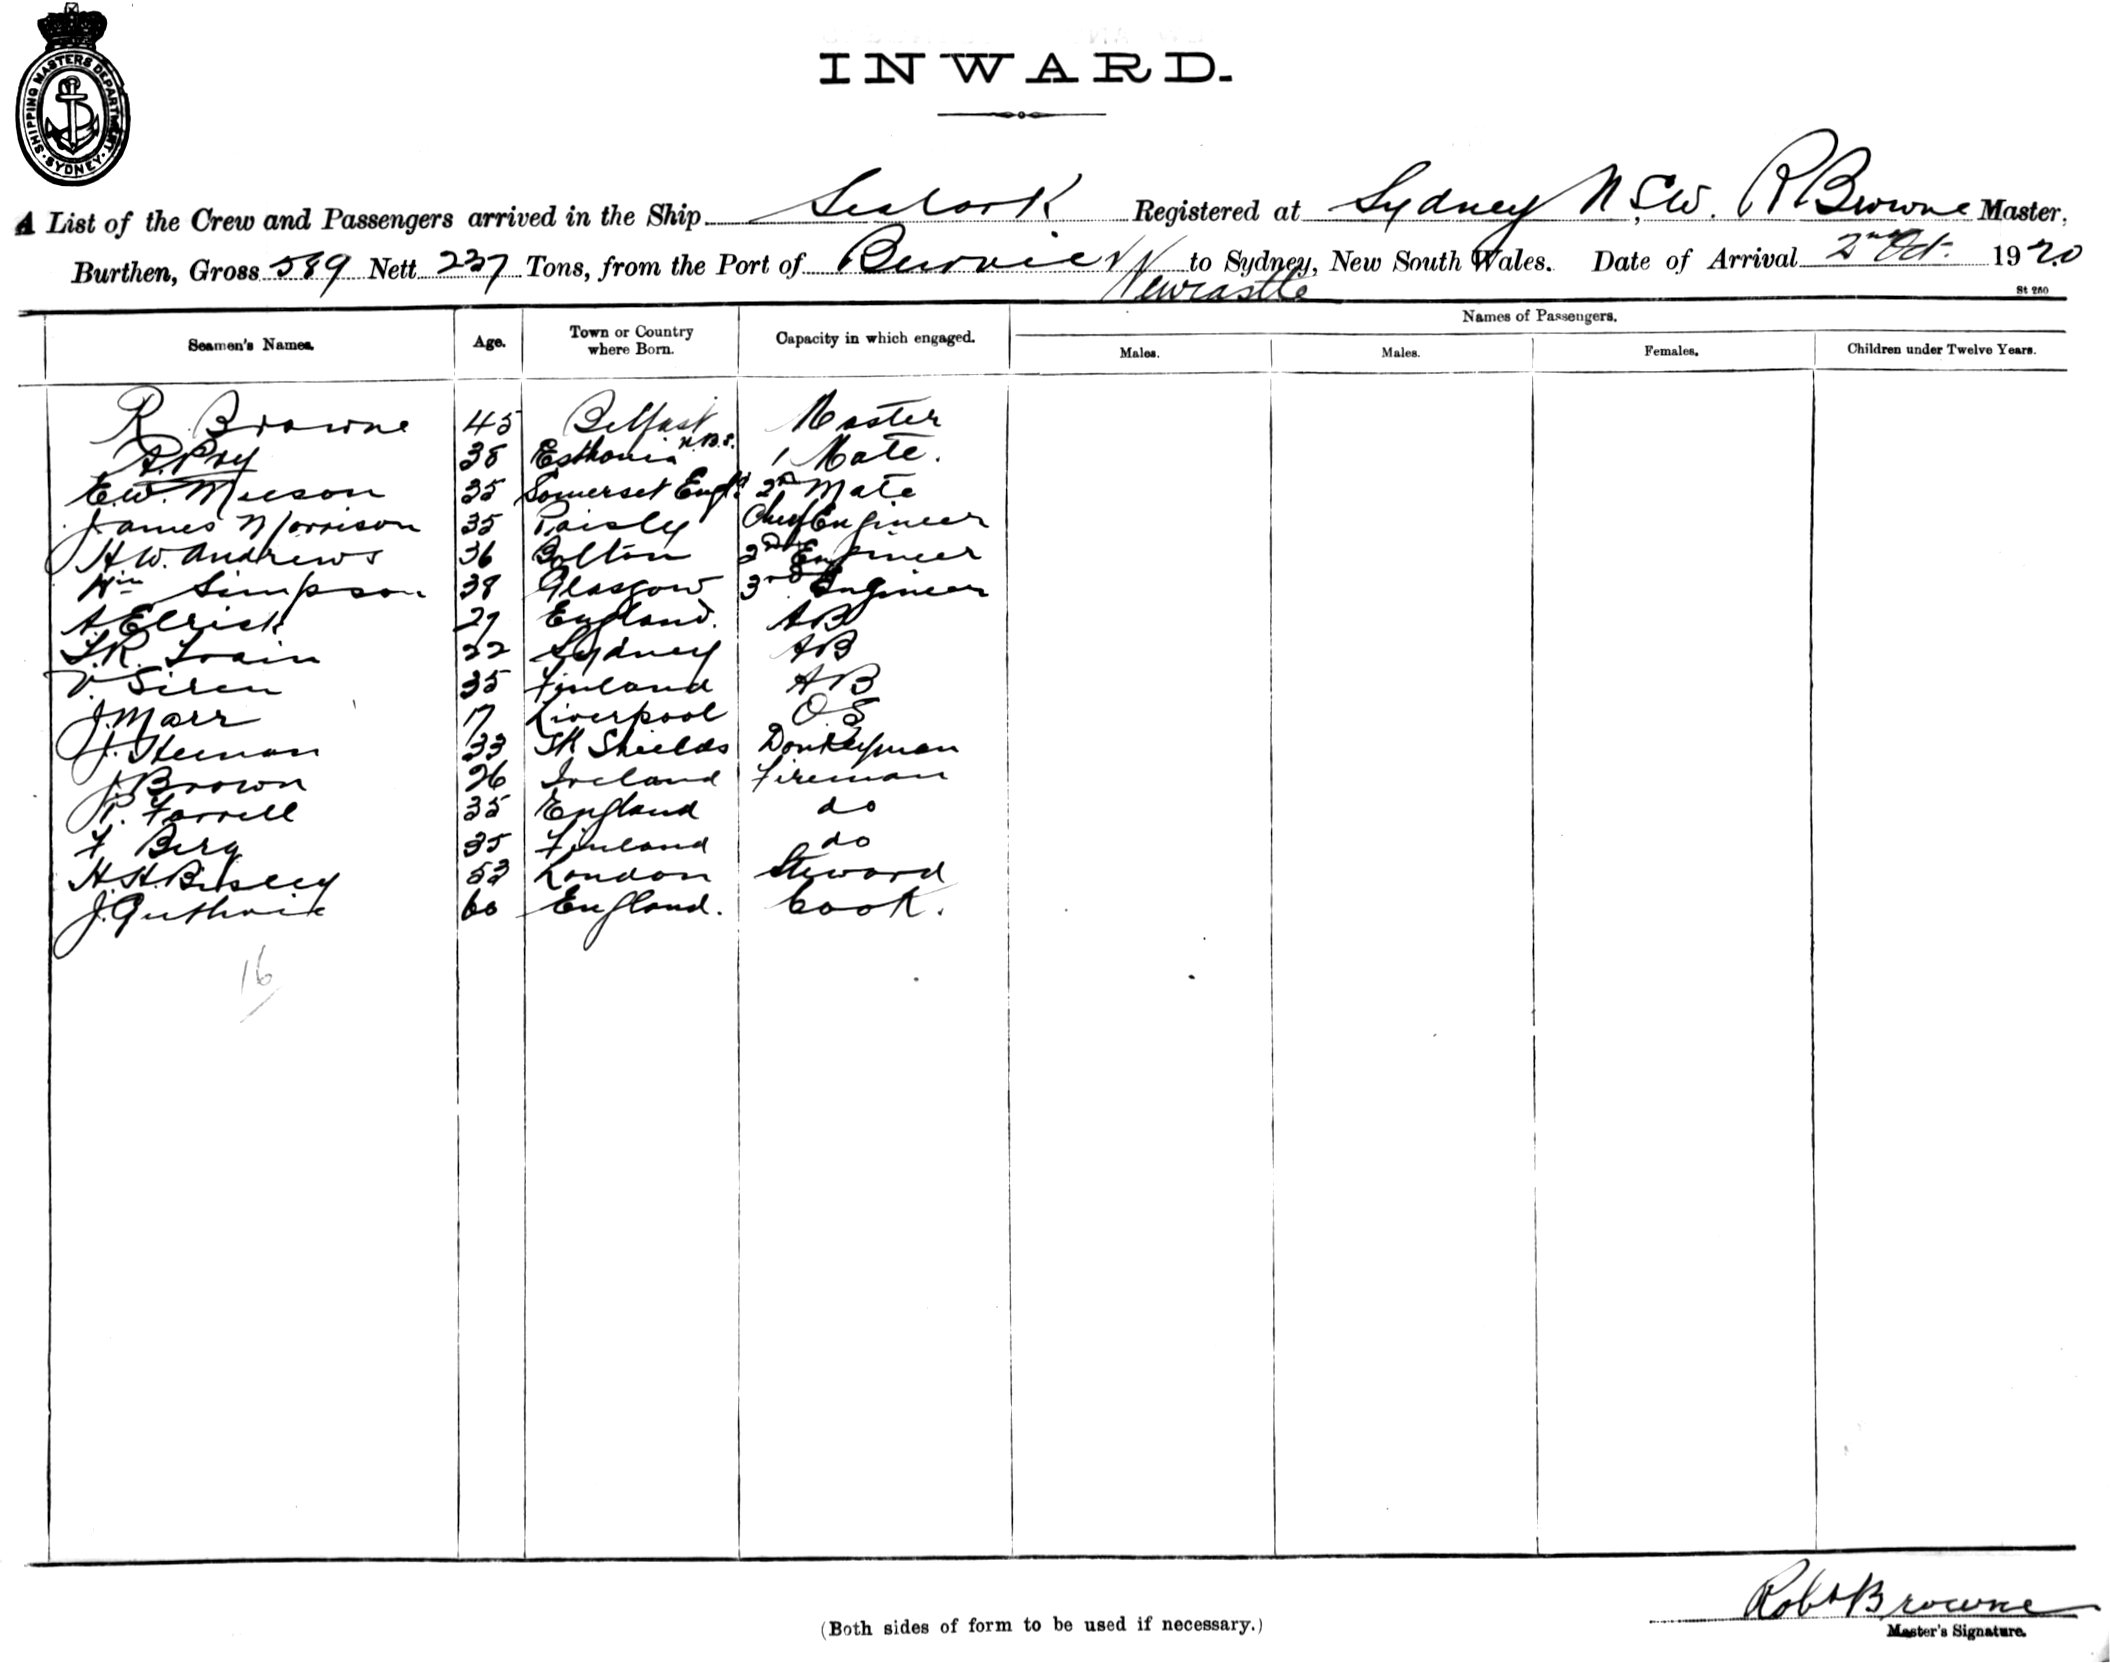 SHIPPING MASTERS DEPARTMENT. SYDNEY
INWARD.
A List of the Crew and Passengers arrived in the Ship Sealark Registered at Sydney N.S.W. R Browne Master,
Burthen, Gross 589 Nett 237 Tons, from the Port of Burnie Newcastle to Sydney, New South Wales. Date of Arrival 2nd Oct. 1920
St 250
Seamen's Names. Age. Town or Country where Born. Capacity in which engaged. Names of Passengers.
Males. Males. Females. Children under Twelve Years.
R Browne 45 Belfast Master
A. 38 Esthonia N.B.S. 1 Mate.
E.W. Meeson 35 Somerset Engld 2nd Mate
James Morrison 35 Paisly Chief Engineer
H.W. Andrews 36 Bolton 2nd Engineer
Wm Simpson 38 Glasgow 3rd Engineer
A. Elrick 27 England. AB
T.R. Train 22 Sydney AB
V. Siren 35 Finland AB
J. Marr 17 Liverpool O.S
J. Heenan 33 Sth Shields Donkeyman
J Brown 26 Ireland Fireman
P. Farrell 35 England do
F Berg 35 Finland do
H.H. Bisley 53 London Steward
J. Guthrie 60 England. Cook.
16
(Both sides of form to be used if necessary.)
Robt Browne
Master's Signature.